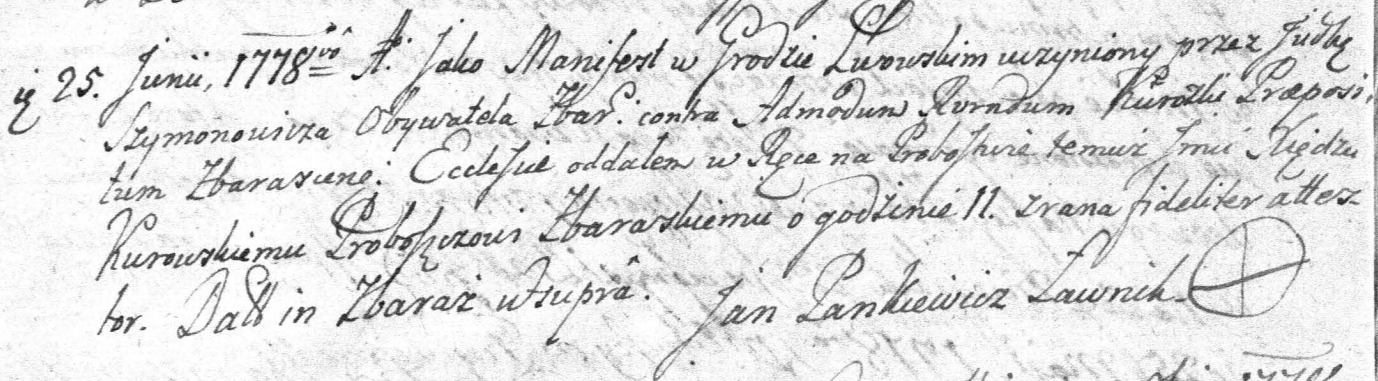 25. Junii, 1778vo A. Jako Manifest w Grodzie Lwowskim uczyniony przez Judkę
Szymonowicza Obywatela Zbar. contra Admodum Rvrndum Præposi,
tum Zbarascens: Ecclesie oddałem w Ręce na Probostwie temuż Jmci Xiędzu
Kurowskiemu Proboszczowi Zbaraskiemu o godzinie 11. zrana fideliter attes=
tor. Datt in Zbaraż ut supra. Jan Pankiewicz Ławnik